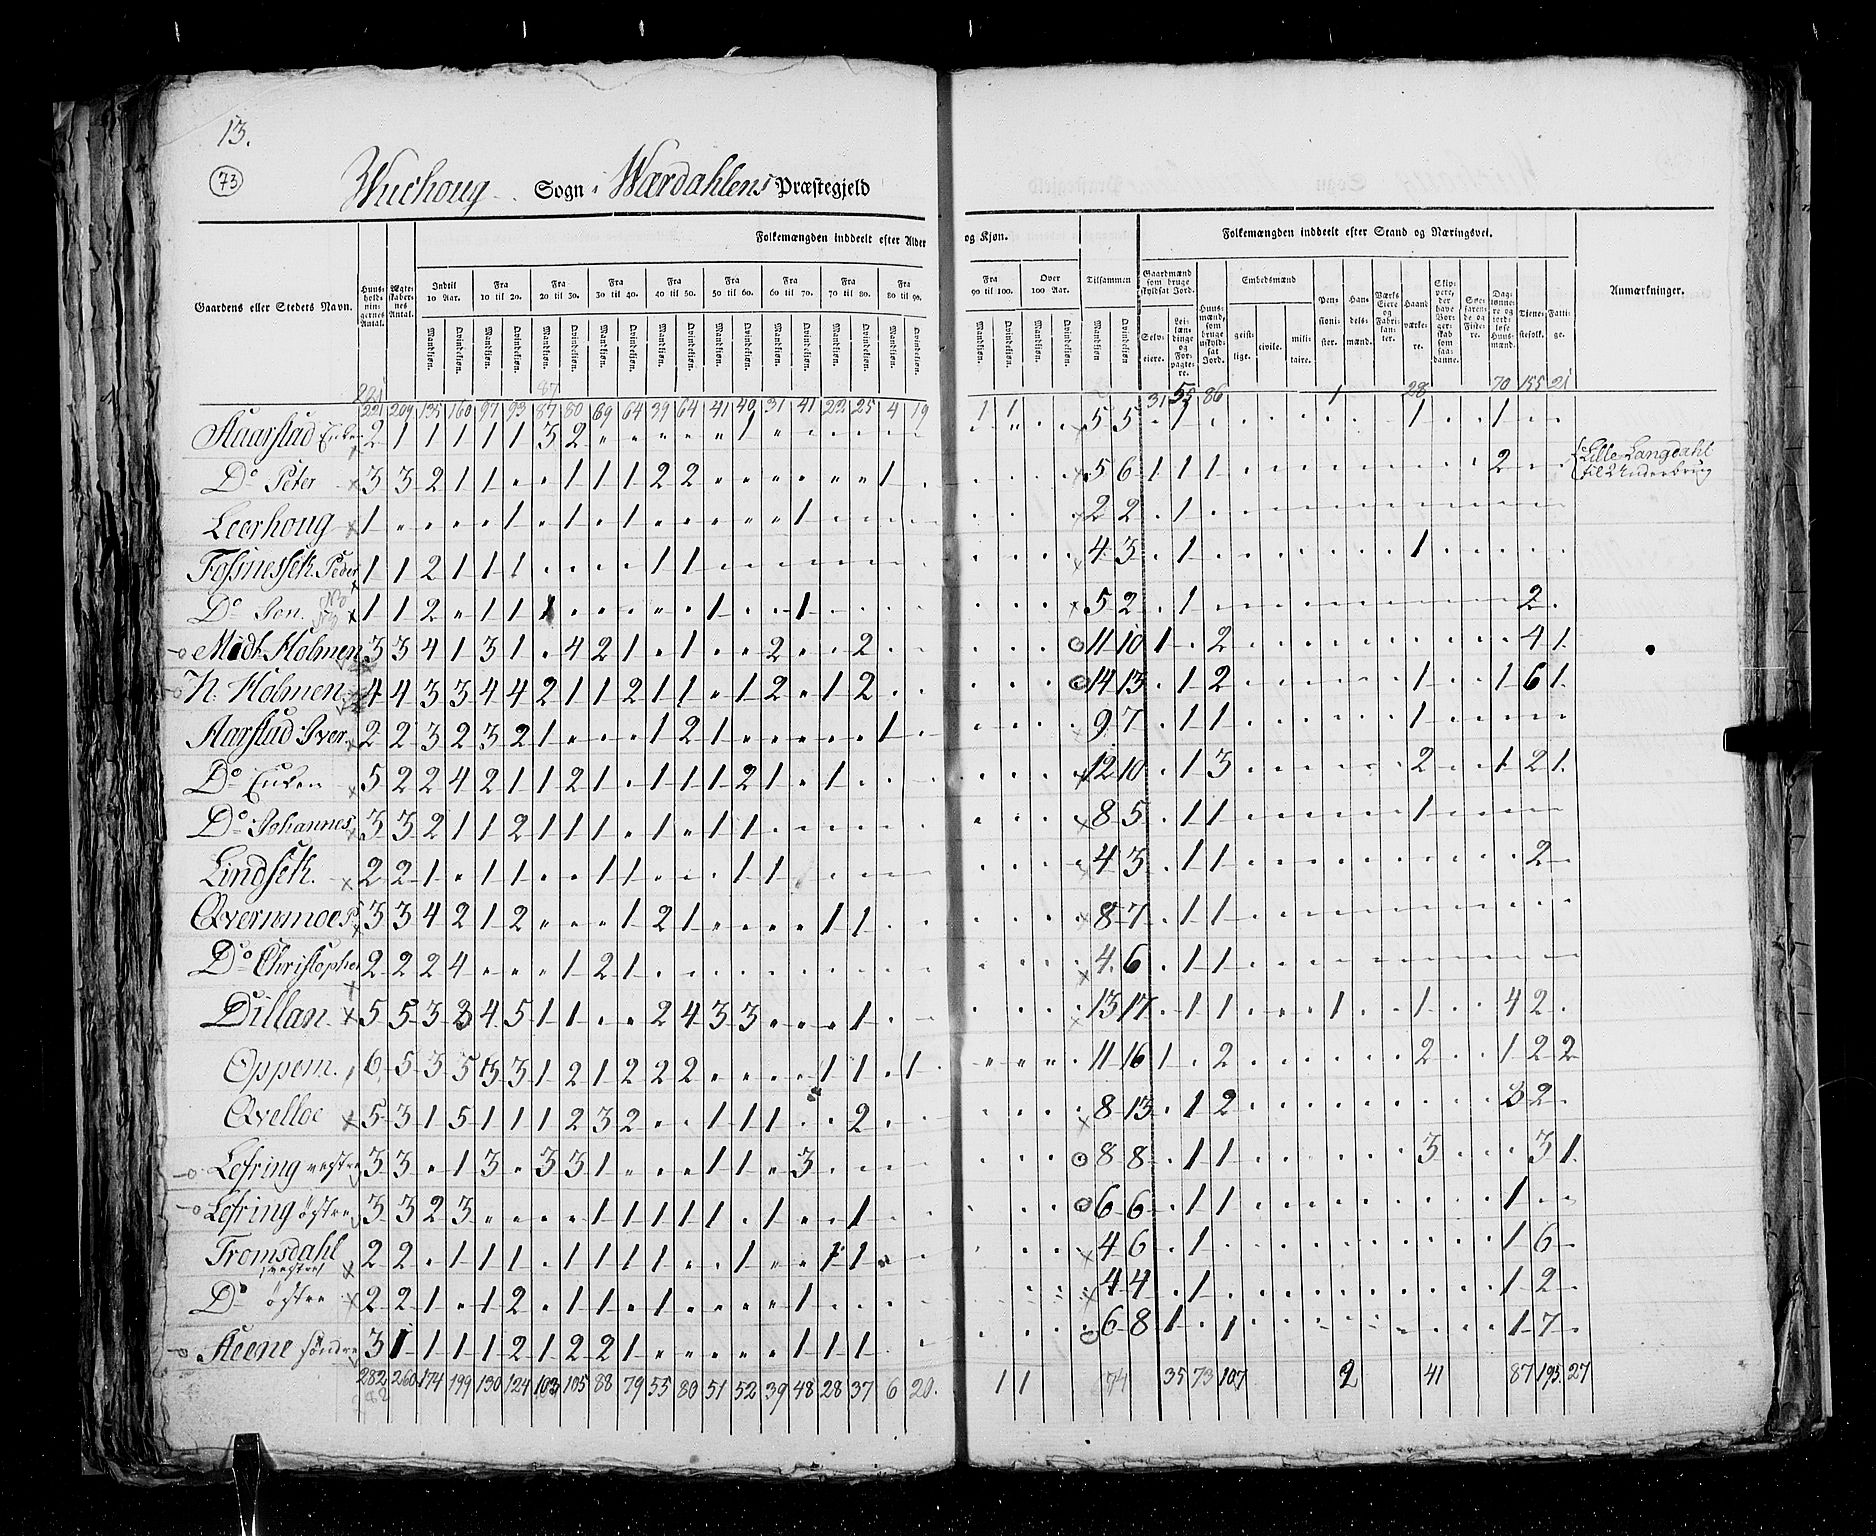 13.
73
Wuchoug Sogn i Wærdahlens Præstegjeld
Folkemængden inddeelt efter Alder og Kjøn.
Folkemængden inddeelt efter Stand og Næringsvei.
Gaardens eller Stedets Navn.
Huus-holdningernes Antal.
Ægteskabernes Antal.
Indtil 10 Aar.
Fra 10 til 20.
Fra 20 til 30.
Fra 30 til 40.
Fra 40 til 50.
Fra 50 til 60.
Fra 60 til 70.
Fra 70 til 80.
Fra 80 til 90.
Fra 90 til 100.
Over 100 Aar.
Tilsammen
Mandkjøn. Qvindekjøn.
Gaardmænd som bruge skyldsat Jord.
Selveiere.
Leilændinge og Forpagtere.
Huusmænd, som bruge uskyldsat Jord.
Embedsmænd
geistlige. civile. militaire.
Pensionister.
Handelsmænd.
Værks Eiere og Fabrikanter.
Haandværkere.
Skippere, der have Borgerskab som saadanne.
Søefarende og Fiskere.
Daglønnere og jordløse Huusmænd.
Tjenestefolk.
Fattige.
Anmærkninger.
221 209 135 160 97 93 87 80 69 64 39 64 41 40 31 41 22 25 4 19 1 1 31 52 86 1 28 70 155 21
Staarstad Enken 2 1 1 1 1 1 1 3 2 1 5 5 1 1 1
Do Peter 3 3 2 1 1 1 1 1 2 2 1 5 6 1 1 1 2 Lille Langdahl
Leerhoug 1 1 1 1 1 2 2 1
Fosnessek Peder 1 1 2 1 1 1 1 1 4 3 1 1
Do Jon 1 1 2 1 1 1 1 1 5 2 1 2
Midt Holmen 3 3 4 1 3 1 4 2 1 1 2 2 11 10 1 2 4 1
N. Holmen 4 4 3 3 4 4 2 1 1 2 1 1 1 2 1 2 14 13 1 2 1 1 6 1
Aarstad Iver 2 2 3 2 3 2 1 1 2 1 1 9 7 1 1 1
Do Enken 5 2 2 4 2 1 1 2 1 1 1 1 2 1 1 12 10 1 3 2 1 2 1
Do Johannes 3 3 2 1 1 2 1 1 1 1 1 1 8 5 1 1 1
Lindsek 2 2 1 1 1 1 1 1 1 4 3 1 1 2
Qvernmoe 3 3 4 2 1 2 1 2 1 1 1 8 7 1 1
Do Christopher 2 2 2 4 1 2 1 4 6 1 1
Dillan 5 5 3 3 4 5 1 1 2 4 3 3 1 13 17 1 1 1 1 4 2
Oppem 6 5 3 5 3 3 1 2 1 2 2 2 1 1 1 11 16 1 2 2 1 2 2
Qvelloe 5 3 1 5 1 1 1 2 3 2 1 1 1 2 8 13 1 2 3 2
Lefring vestre 3 3 1 3 3 3 1 1 1 3 8 8 1 1 3 3 1
Lefring østre 3 3 2 3 1 1 1 1 1 1 1 6 6 1 1 1
Tromsdahl vestre 2 2 1 1 1 1 1 1 1 1 1 1 4 6 1 1 6
Do østre 2 2 1 1 2 1 1 1 1 4 4 1 1 2
Steene søndre 3 1 1 1 1 2 1 2 2 1 1 1 1 6 8 1 1 1 7
282 260 174 199 130 124 103 105 88 79 55 80 51 52 39 48 28 37 6 20. 1 1 74 35 73 107 2 41 87 195 27